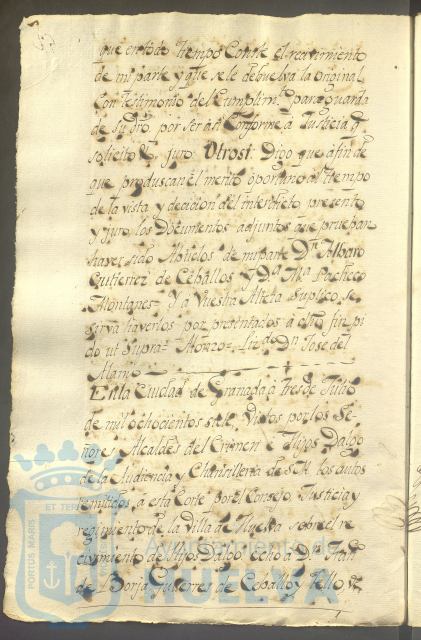 que en todo tiempo Conste el recivimiento
de mi parte y qᵉ se le debuelva la original
Con testimonio del Cumplimᵗᵒ para guarda
de su dro. por ser asi Conforme a Justicia q
solicito &. juro. Otrosi. Digo que afin de
que produscan el merito oportuno al tiempo
de la vista y decicion del interdicto presento
y juro los Documentos adjuntos que prueban
haver sido Abuelos de mi parte Dⁿ Albaro
Gutierrez de Ceballos y Dª Mª Pacheco
Montanes= Y a Vuestra Alteza Suplico se
sirva haverlos por presentados a cuio fin pi
do ut supra= Alonzo= Lizᵈᵒ Dⁿ Jose del
Alamo
En la Ciudad de Granada à tres de Julio
de mil ochocientos siete, Vistos por los Se
ñores Alcaldes del Crimen é Hijos Dalgo
de la Audiencia y Chancilleria de S.M. los autos
remitidos a esta Corte por el Consejo, Justicia y
regimiento de la Villa de Huelva sobre el re
civimiento de Hijo Dalgo echo a Dⁿ Franᶜᵒ
de Borja Gutierres de Ceballos y Tello, Vᵒ
PORTUS MARIS ET TERRAE
Ayuntamiento de
HUELVA